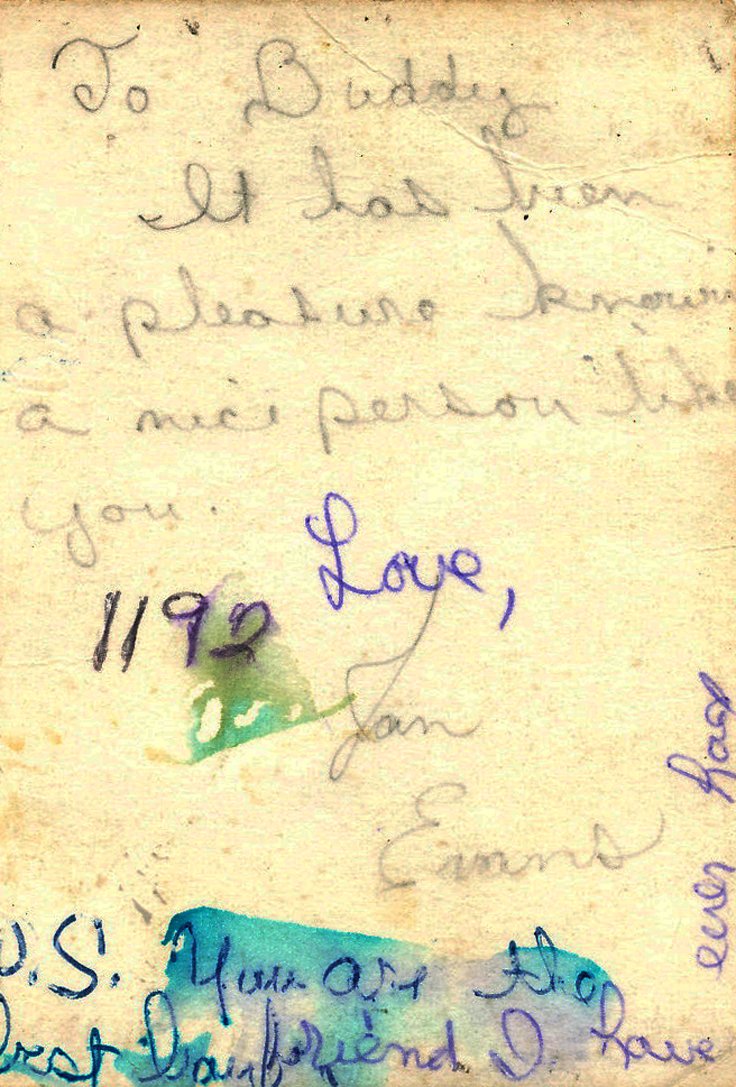 To Buddy
It has been
a pleasure knowin
a nice person like
you.
Love,
1192
Jan
Emms
P.S. You are the
best boyfriend I have
ever had